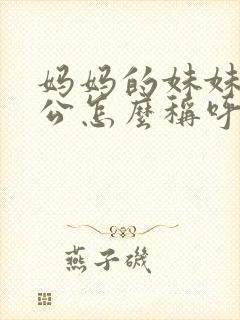 妈妈的妹妹
公怎麼稱呼
燕子磯